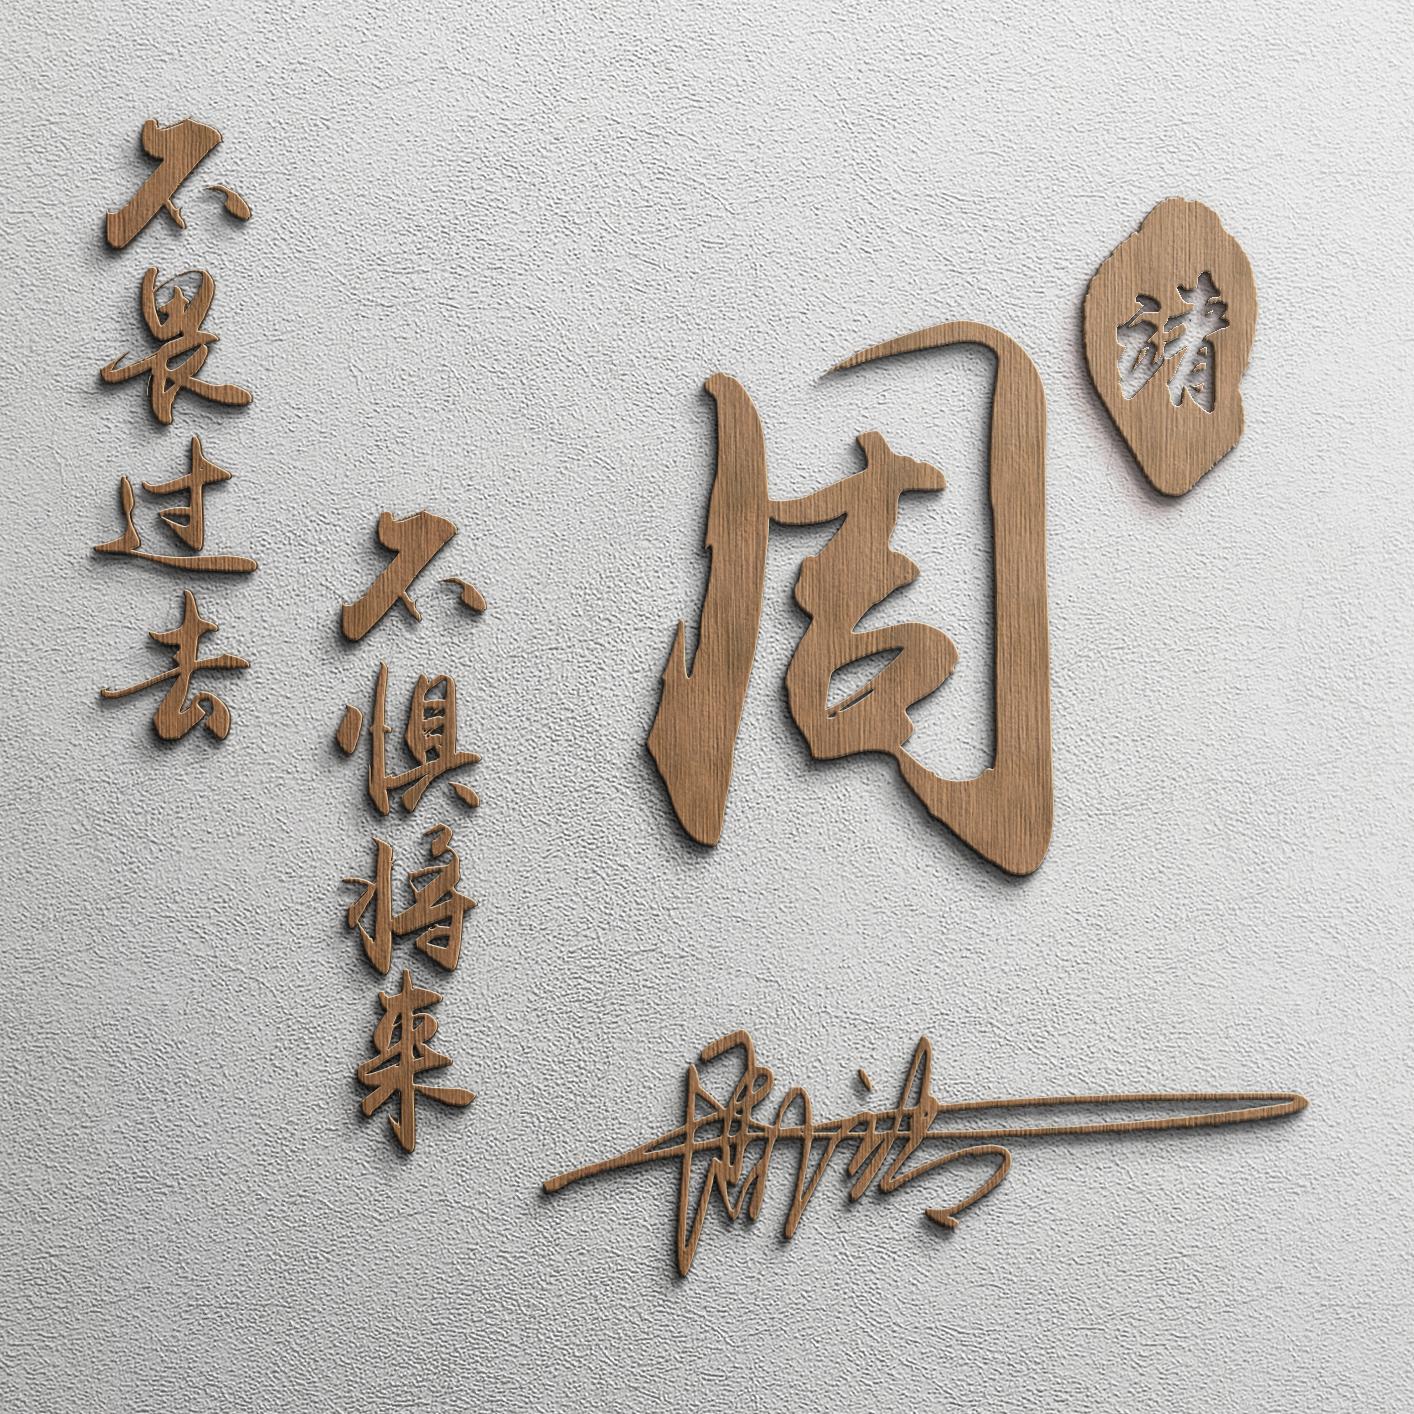 不畏过去
不惧将来
周
靖